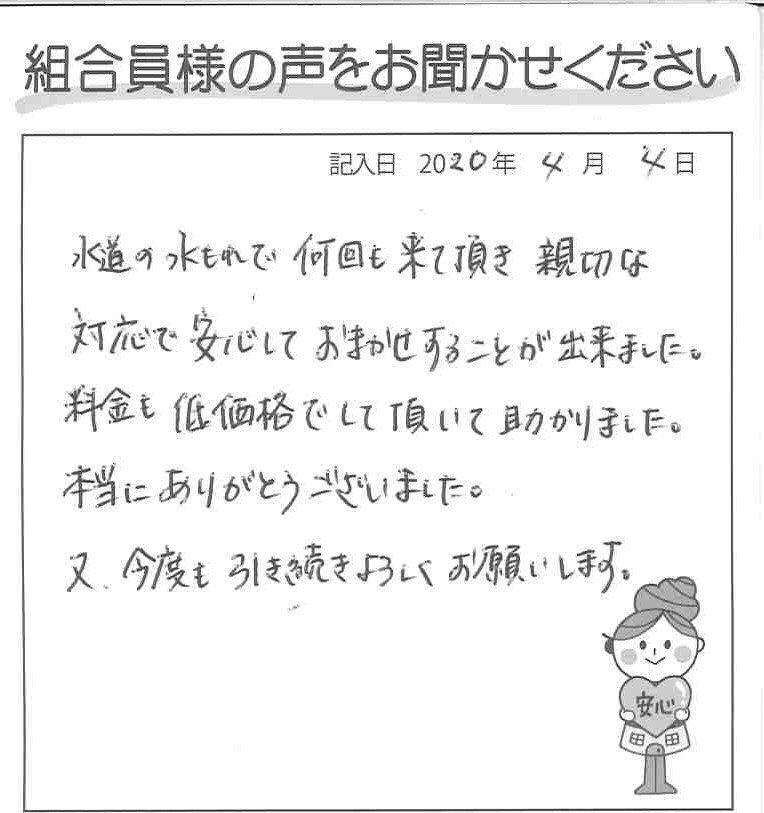 組合員様の声をお聞かせください
記入日 2020年 4月 4日
水道の水もれで 何回も 来て頂き 親切な
対応で 安心して おまかせすることが 出来ました。
料金も 低価格でして頂いて 助かりました。
本当に ありがとうございました。
又、今度も 引き続きよろしく お願いします。
安心